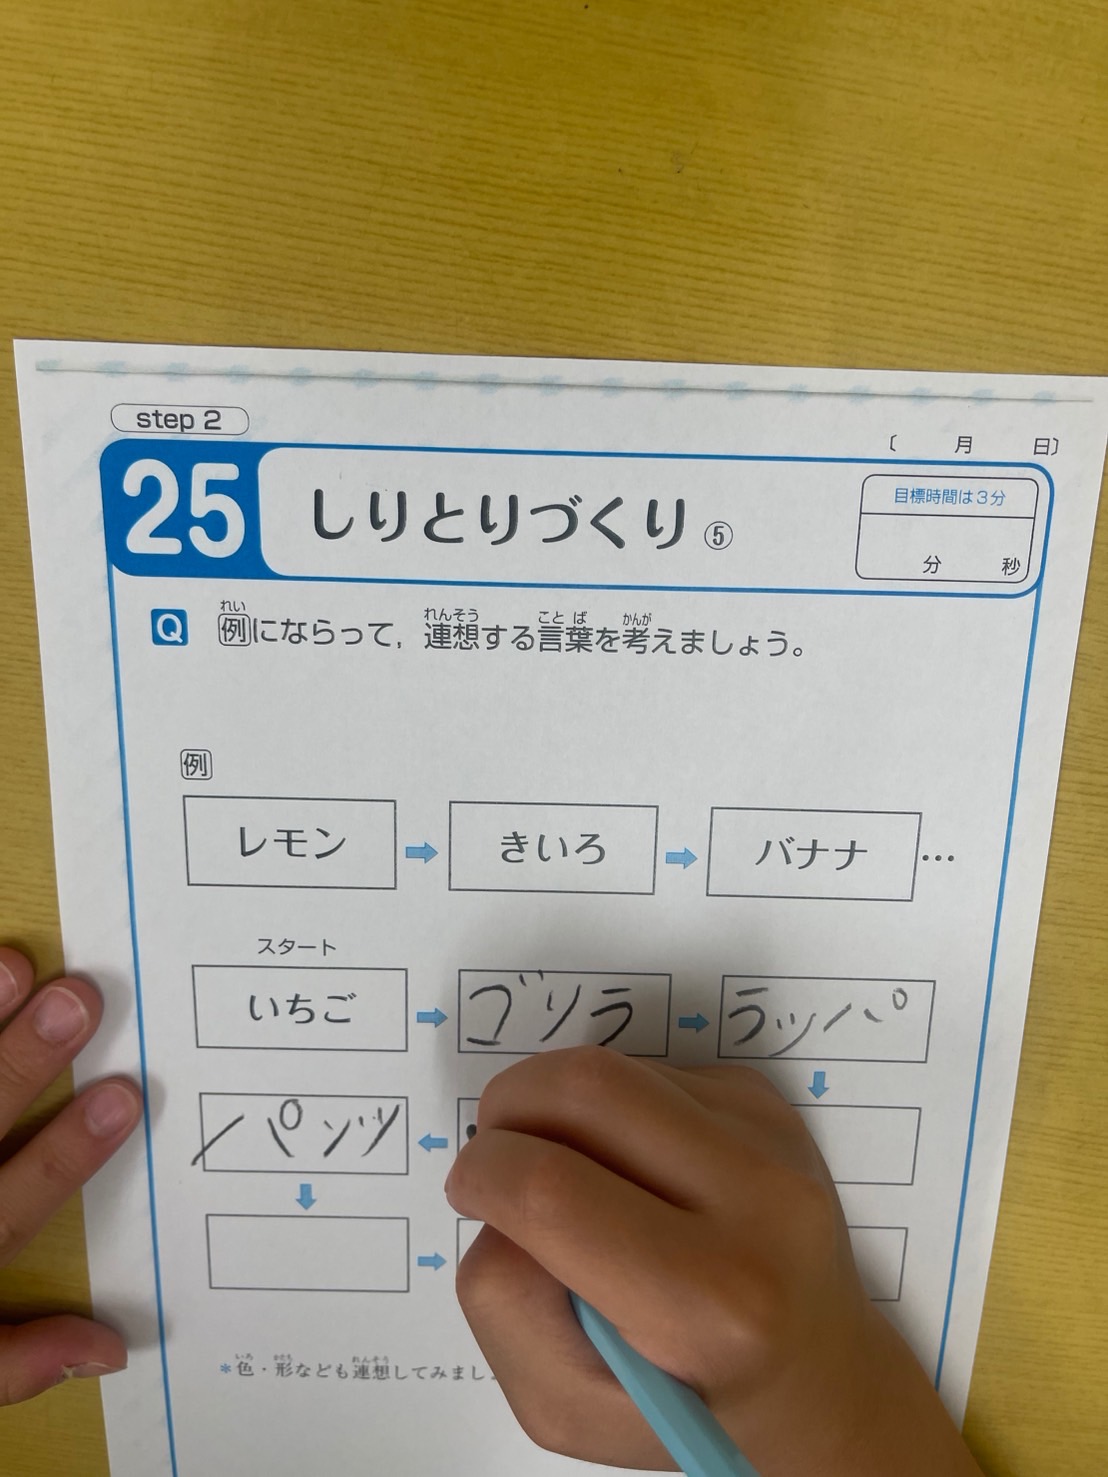 step 2
〔　月　日〕
25 しりとりづくり ⑤
目標時間は3分
分　秒
Q 例にならって，連想する言葉を考えましょう。
れい れんそう こと ば かんが
例
レモン ➡ きいろ ➡ バナナ …
スタート
いちご ➡ ゴリラ ➡ ラッパ
パンツ
*色・形なども連想してみまし
いろ かたち れんそう